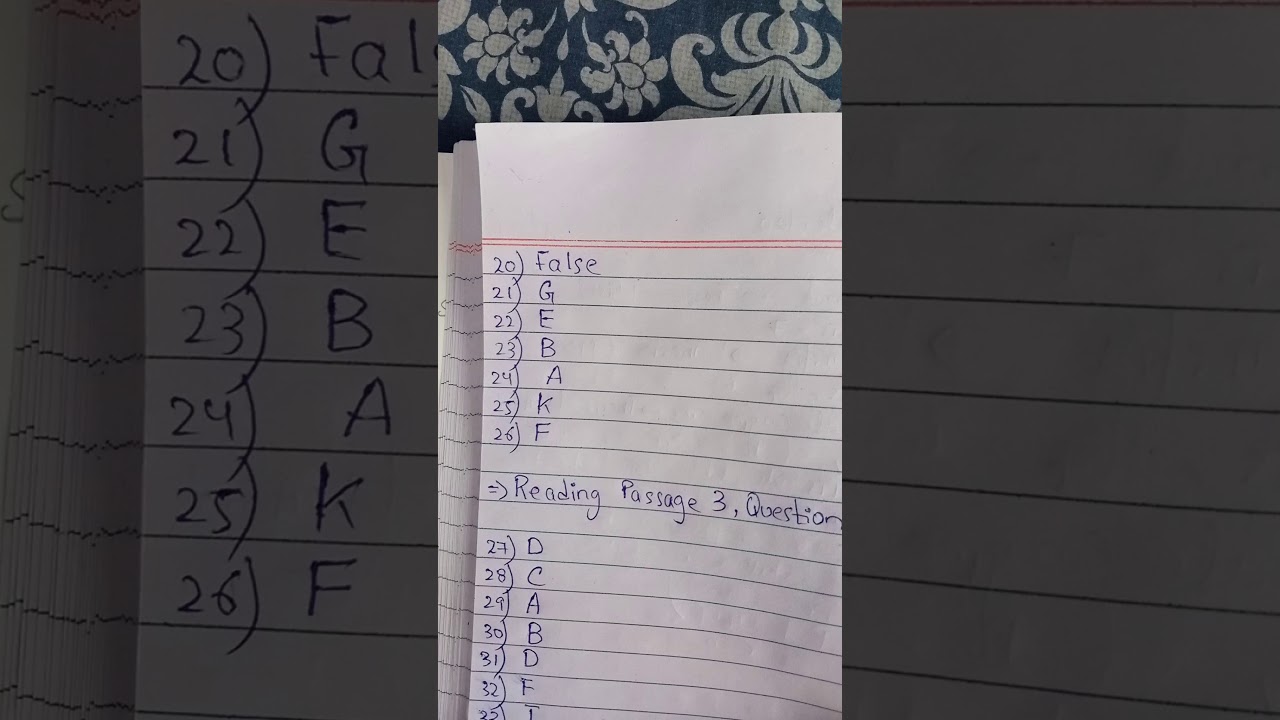 20) False
21) G
22) E
23) B
24) A
25) K
26) F
=> Reading Passage 3, Question
27) D
28) C
29) A
30) B
31) D
32) F
20) Fal
21) G
22) E
23) B
24) A
25) K
26) F